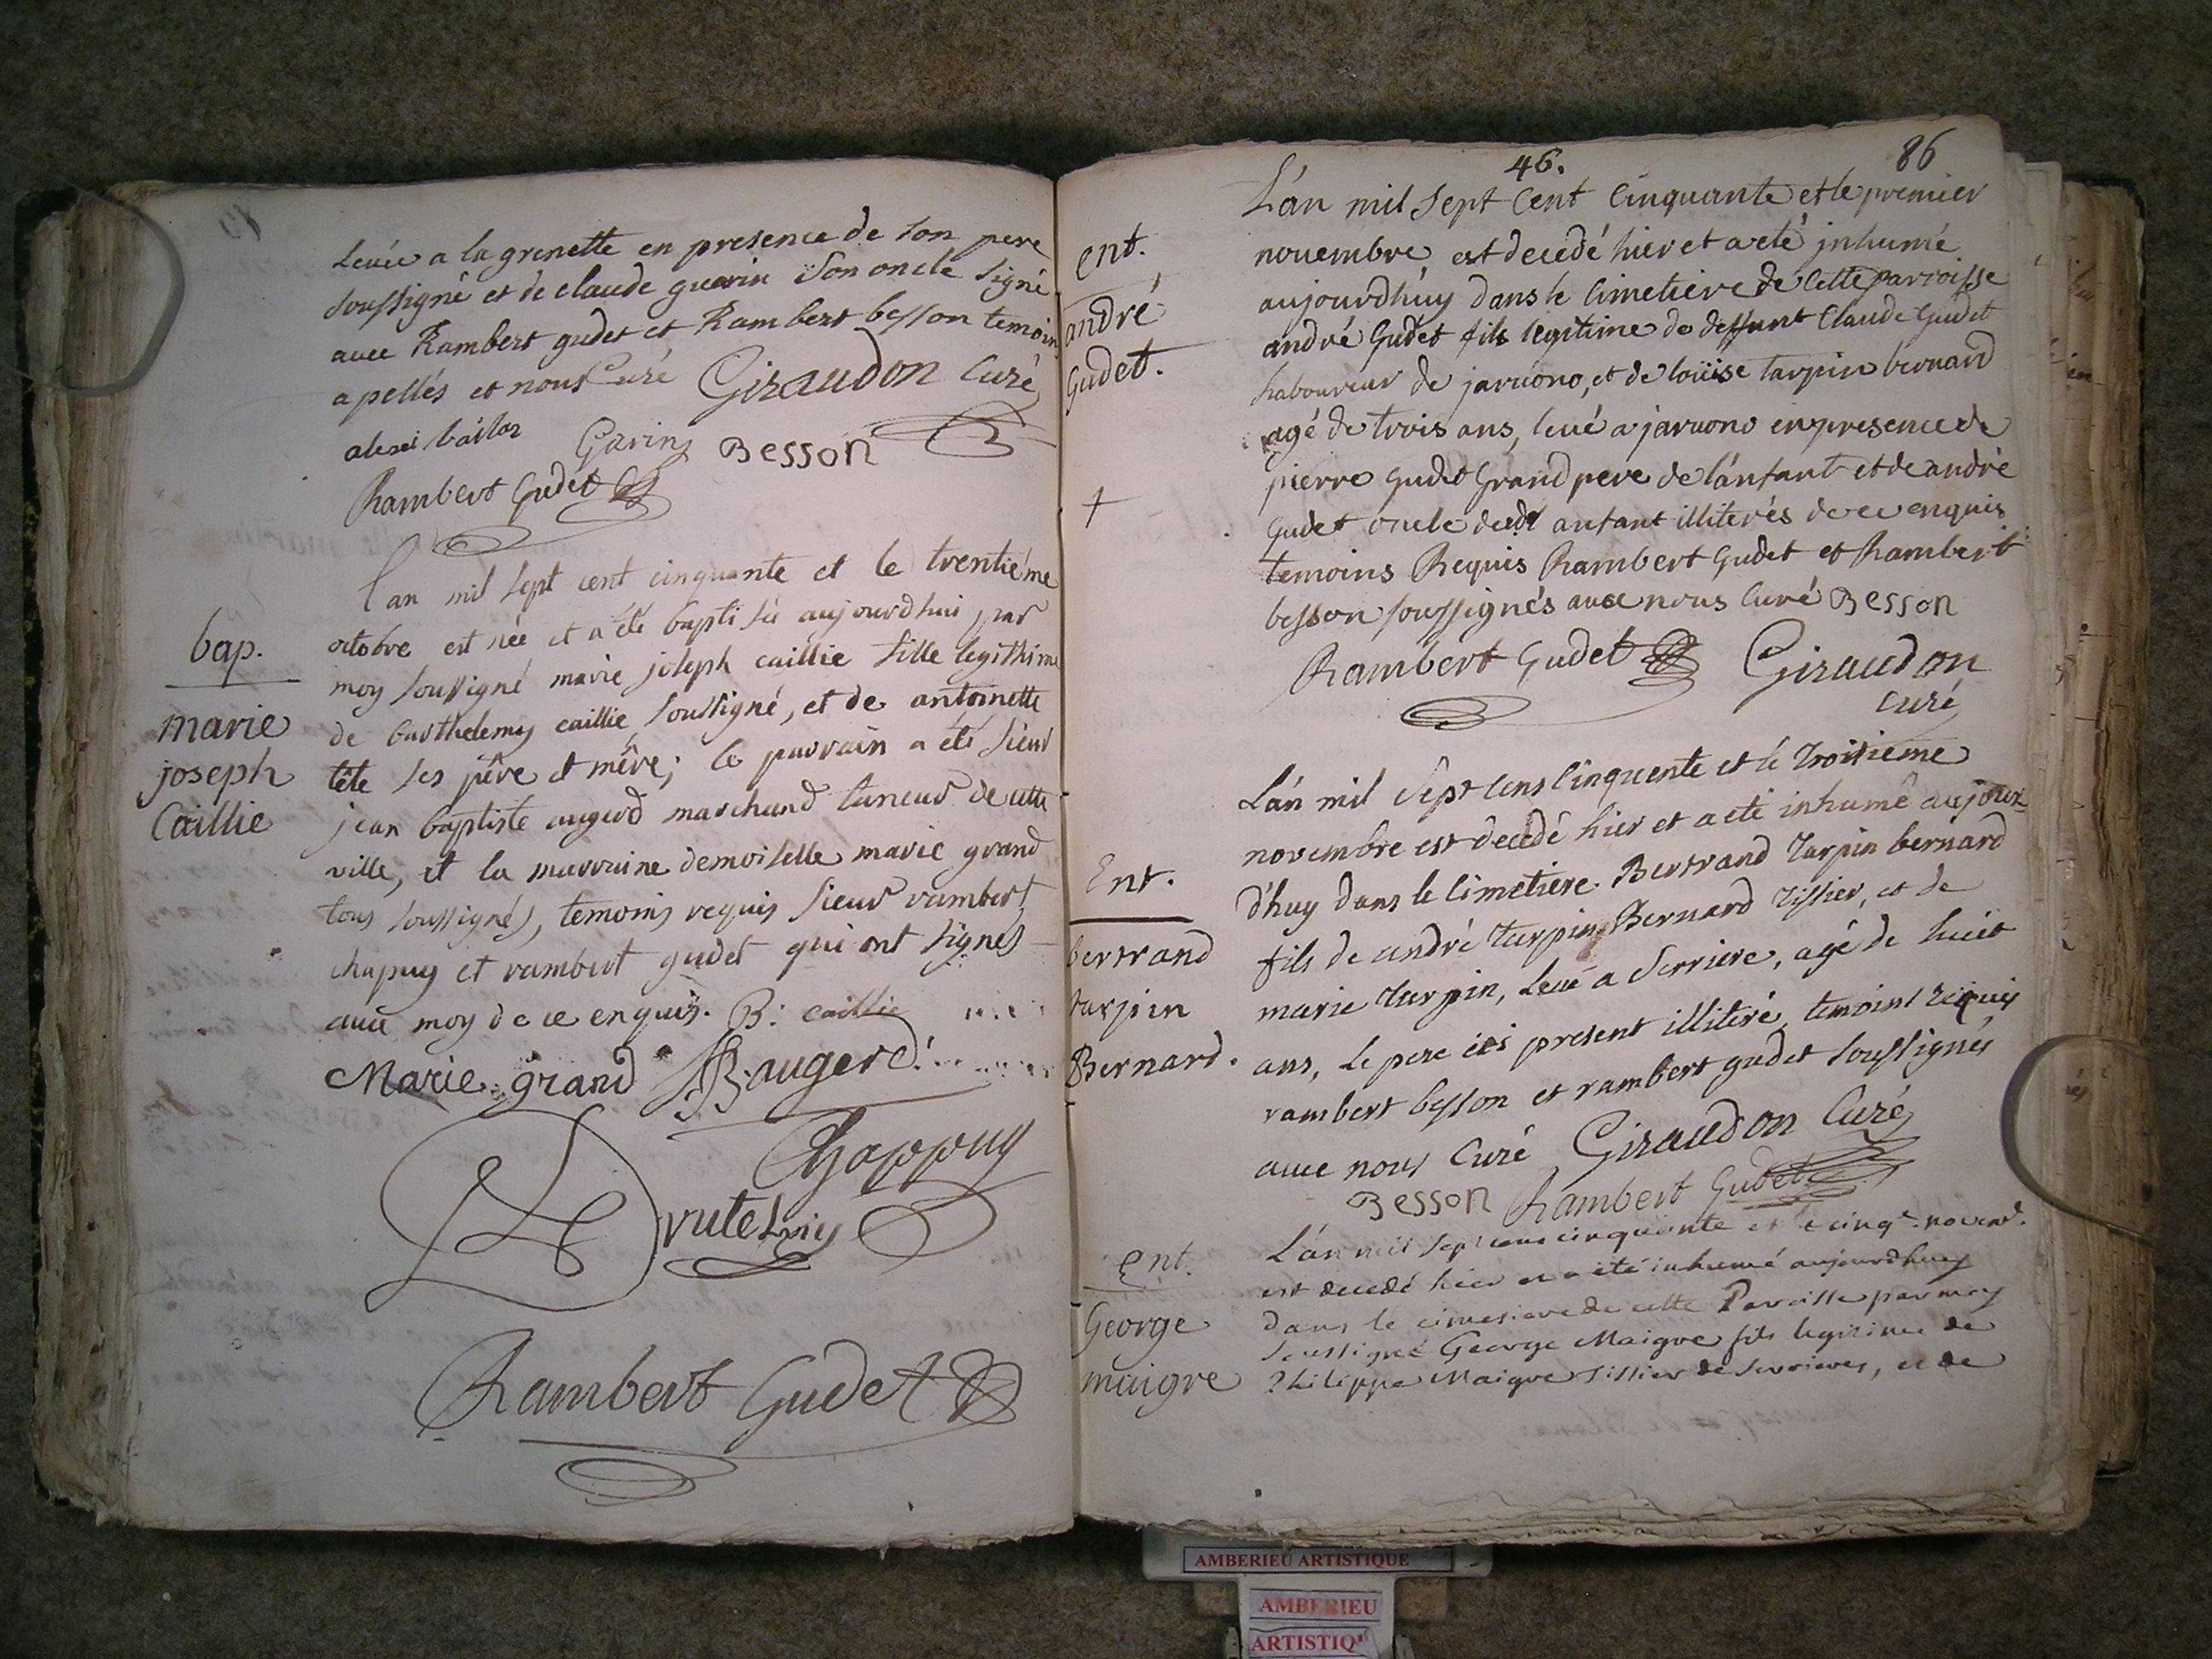 Levée a la grenette en presence de son pere
soussigné et de claude guerin son oncle signé
avec Rambert gudet et Rambert besson temoins
apellés et nous Curé Giraudon Curé
Garin Besson
Rambert Gudet
l'an mil sept cent cinquante et le trentiéme
octobre est née et a été baptisée aujourdhui par
moy soussigné marie joseph caillie fille legithime
de barthelemy caillie soussigné, et de antoinette
tête ses pére et mére; le parrain a été sieur
jean baptiste augerd marchand taneur de cette
ville, et la marraine demoiselle marie grand
tous soussignés, temoins requis sieur rambert
chapuy et rambert gudet qui ont signés
avec moy de ce enquis. B: caillie
Marie grand JB: augerd
Chappuy
Rambert Gudet
bap.
marie
joseph
Caillie
46. 86
L'an mil sept Cent Cinquante et le premier
novembre est decedé hier et a eté jnhumé
aujourdhuy dans le Cimetiere de Cette parroisse
andré Gudet fils legitime de deffunt Claude Gudet
Laboureur de jarvono, et de loüise tarpin bernard
agé de trois ans, levé a jarvono en presence de
pierre gudet Grand pere de l'anfant et de andré
Gudet oncle dudt anfant illiterés de ce enquis
temoins Requis Rambert Gudet et Rambert
besson soussignés avec nous Curé Besson
Rambert Gudet Giraudon
Curé
ent.
andré
Gudet.
+
L'an mil sept cens Cinquente et le Troisieme
novembre est decedé hier et a eté inhumé aujour-
d'huy dans le Cimetiere Bertrand Tarpin bernard
fils de andré Tarpin Bernard Tissier, et de
marie Tarpin, Levé a Serriere, agé de huit
ans, Le pere ici present illiteré, temoins requis
rambert besson et rambert gudet soussignés
avec nous Curé Giraudon Curé
Besson Rambert Gudet
Ent.
bertrand
tarpin
Bernard.
L'an mil sept cens cinquante et le cinqe. novemb.
est decedé hier et a été inhumé aujourdhuy
dans le cimetiere de cette Paroisse par moy
soussigné George Maigre fils legitime de
Philippe Maigre tissier de Serrieres, et de
Ent.
George
maigre
AMBERIEU ARTISTIQUE
AMBERIEU
ARTISTIQ